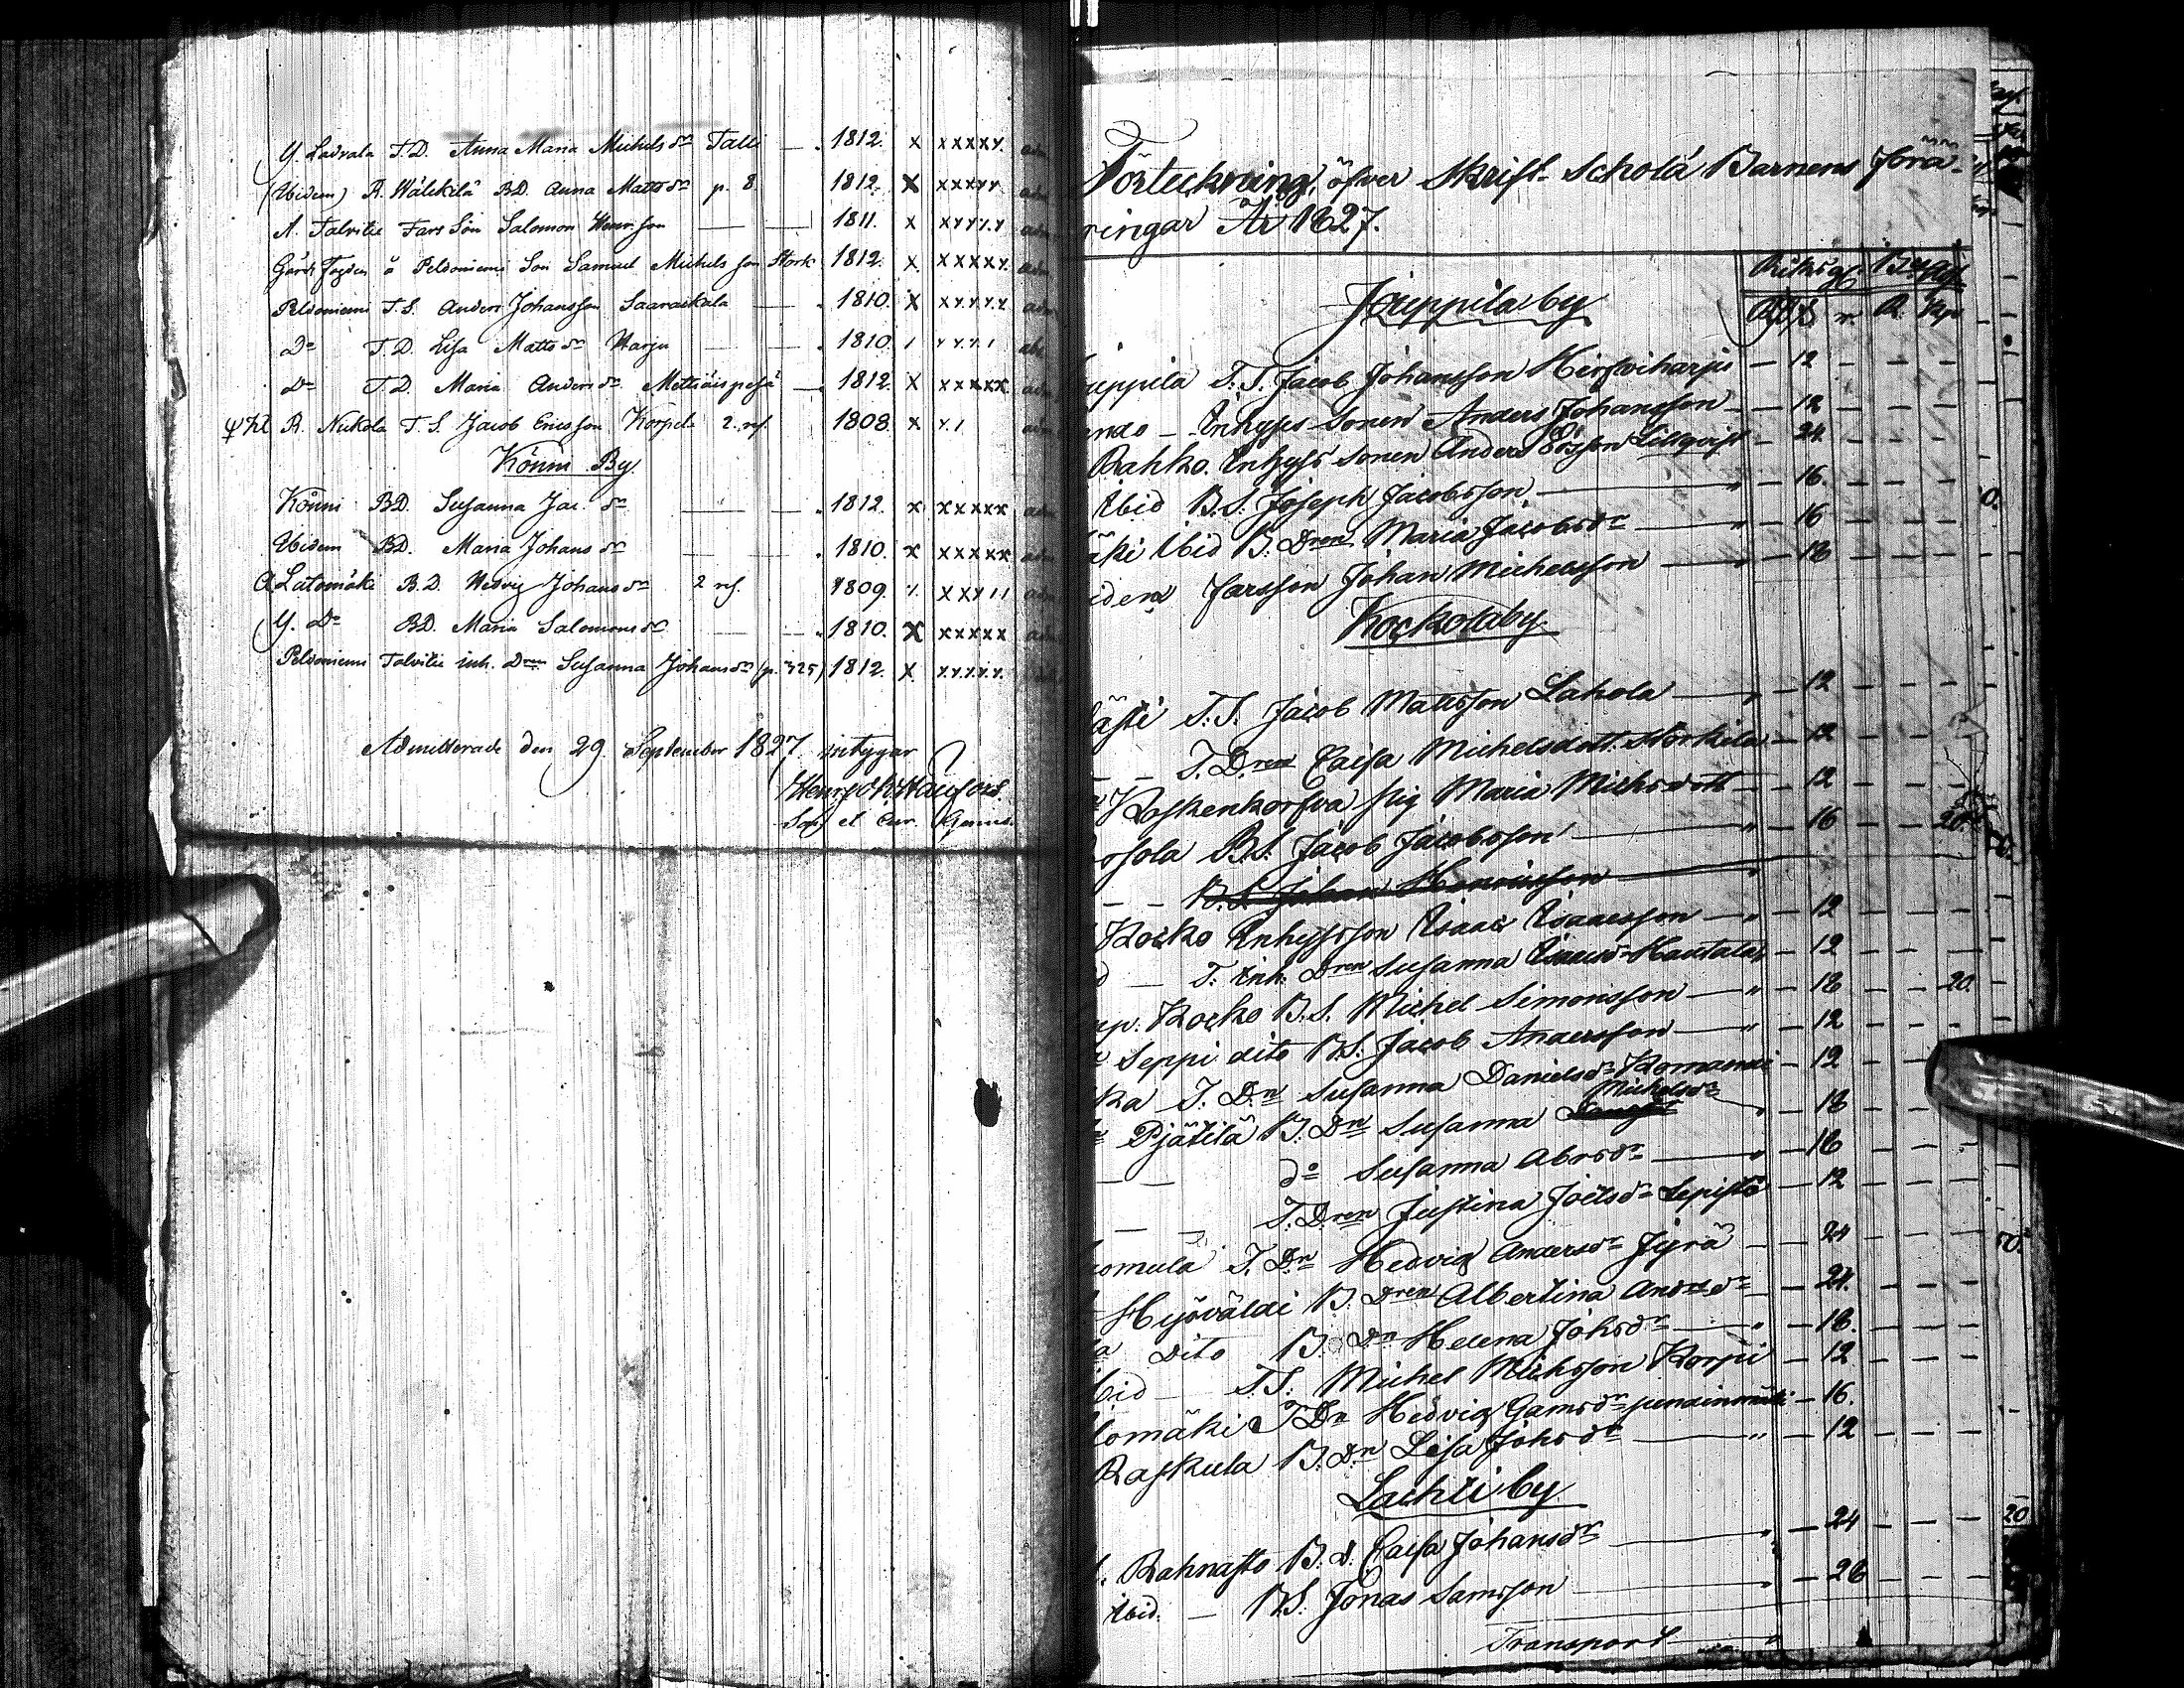 Y. Ladvala T.D. Anna Maria Michels dr Talli — 1812. x xxxxx. adm
(Ibidem) R. Wälckilä BD. Anna Matts dr p. 8. 1812. x xxxxx adm
A. Talvitie Fars Son Salomon Henr. son — — 1811. x xxxxx adm
Gårds Fogden å Peldoniemi Son Samuel Michels son Stork 1812. x xxxxx. adm
Peldoniemi T.S. Anders Johansson Saaraskala — 1810. x xxxxx adm
Do T.D. Lisa Matts dr Harju — — 1810. adm
Do T.D. Maria Anders dr Mettiäispesä — 1812. x xxxxx adm
R. Nickola T.S. Jacob Ericsson Korpela 2. ref. 1808. x x.1 adm
Könni By.
Könni BD. Susanna Jac. dr — — 1812. x xxxxx adm
Ibidem BD. Maria Johans dr — — 1810. x xxxxx adm
A. Latomäki B.D. Hedvig Johans dr 2 ref. 1809. adm
Y. Do BD. Maria Salomons dr — — 1810. x xxxxx adm
Peldoniemi Talvitie inh. Dren Susanna Johans dr (p. 325) 1812. x x.x.x.x.x.
Admitterade den 29. September 1827 intygar
Sac. et Cur.
Förteckning, öfver Skrift-Scholä Barnens
ringar År 1827.
Riksg.
R. Kp
Jouppilaby
uppila T.S. Jacob Johansson Hirswiharju — 12 — — —
Inhyses Sonen Anders Johansson — 12 — — —
Rahko. Inhyses sonen Anders Ersson Lillqvist — 24. — — —
Ibid B.S. Joseph Jacobsson — 16. — — —
äki Ibid B. Dren Maria Jacobsdr — 16 — — —
idem farsson Johan Michelsson — 18 — — —
Kockolaby
T.S. Jacob Mattsson Lahola — 12 — — —
— — T. Dren Caisa Michelsdott. — 12 — — —
Koskenkorfva pig Maria Michsdott — 12 — — —
B.S. Jacob Jacobsson — 16 — — 20.
— — B.S. Johan Henricsson —
Kocko Inhyssson Isaac Isaacsson — 12 — — —
T. Inh. Dren Susanna Isaacsdr Hautala — 12 — — —
Kocko B.S. Michel Simonsson — 18 — — 20.
Seppi dito B.S. Jacob Andersson — 12 — — —
ka T. Dn Susanna Danielsdr — 12 — — —
Pjätilä B. Dn Susanna Michelsdr — 18 —
— — do Susanna Abrsdr — 18 — — —
— — T. Dren Justina Sepistö — 12 — — —
T. Dn Hedvig Andersdr Jyrä — 24 — — —
Hyöväldi B. Dren Albertina Andrsdr — 24. — — —
a Dito B. Dn Helena Johsdr — 18. — — —
bid — T.S. Michel Michsson Korpi — 12 — — —
lomäki T Dn Hedvig — 16. — — —
Raskula B. Dn Lisa Johsdr — 12 — — —
Lachtiby
Rahnasto B. d. Caisa Johansdr — 24 — — —
Ibid. — B.S. Jonas Samsson — 26 — — —
Transport